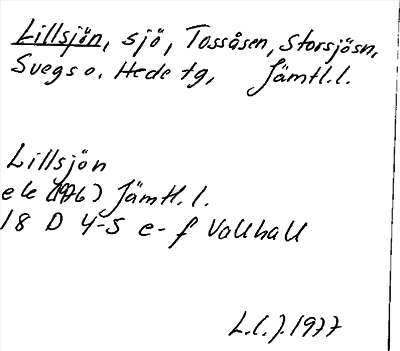 Lillsjön, sjö, Tossåsen, Storsjösn,
Svegs o. Hede tg, Jämtl.l.
Lillsjön
ek (1976) Jämtl.l.
18 D 4-5 e-f Vallhall
L.l.J.1977